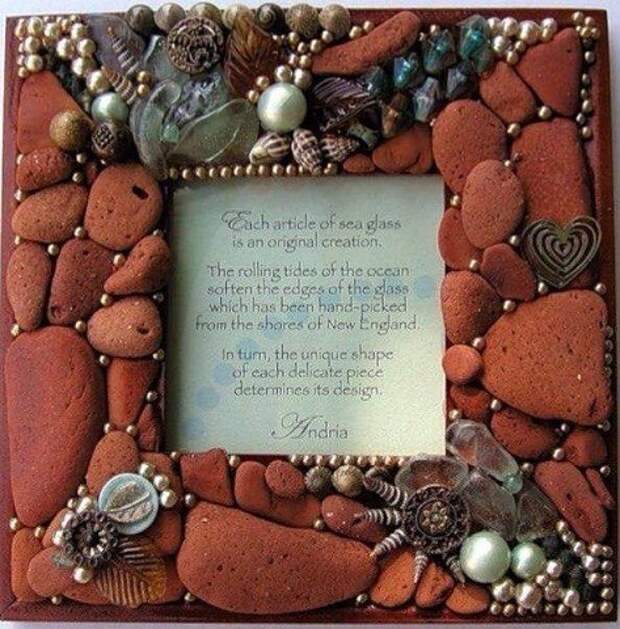 Each article of sea glass
is an original creation.
The rolling tides of the ocean
soften the edges of the glass
which has been hand-picked
from the shores of New England.
In turn, the unique shape
of each delicate piece
determines its design.
Andria